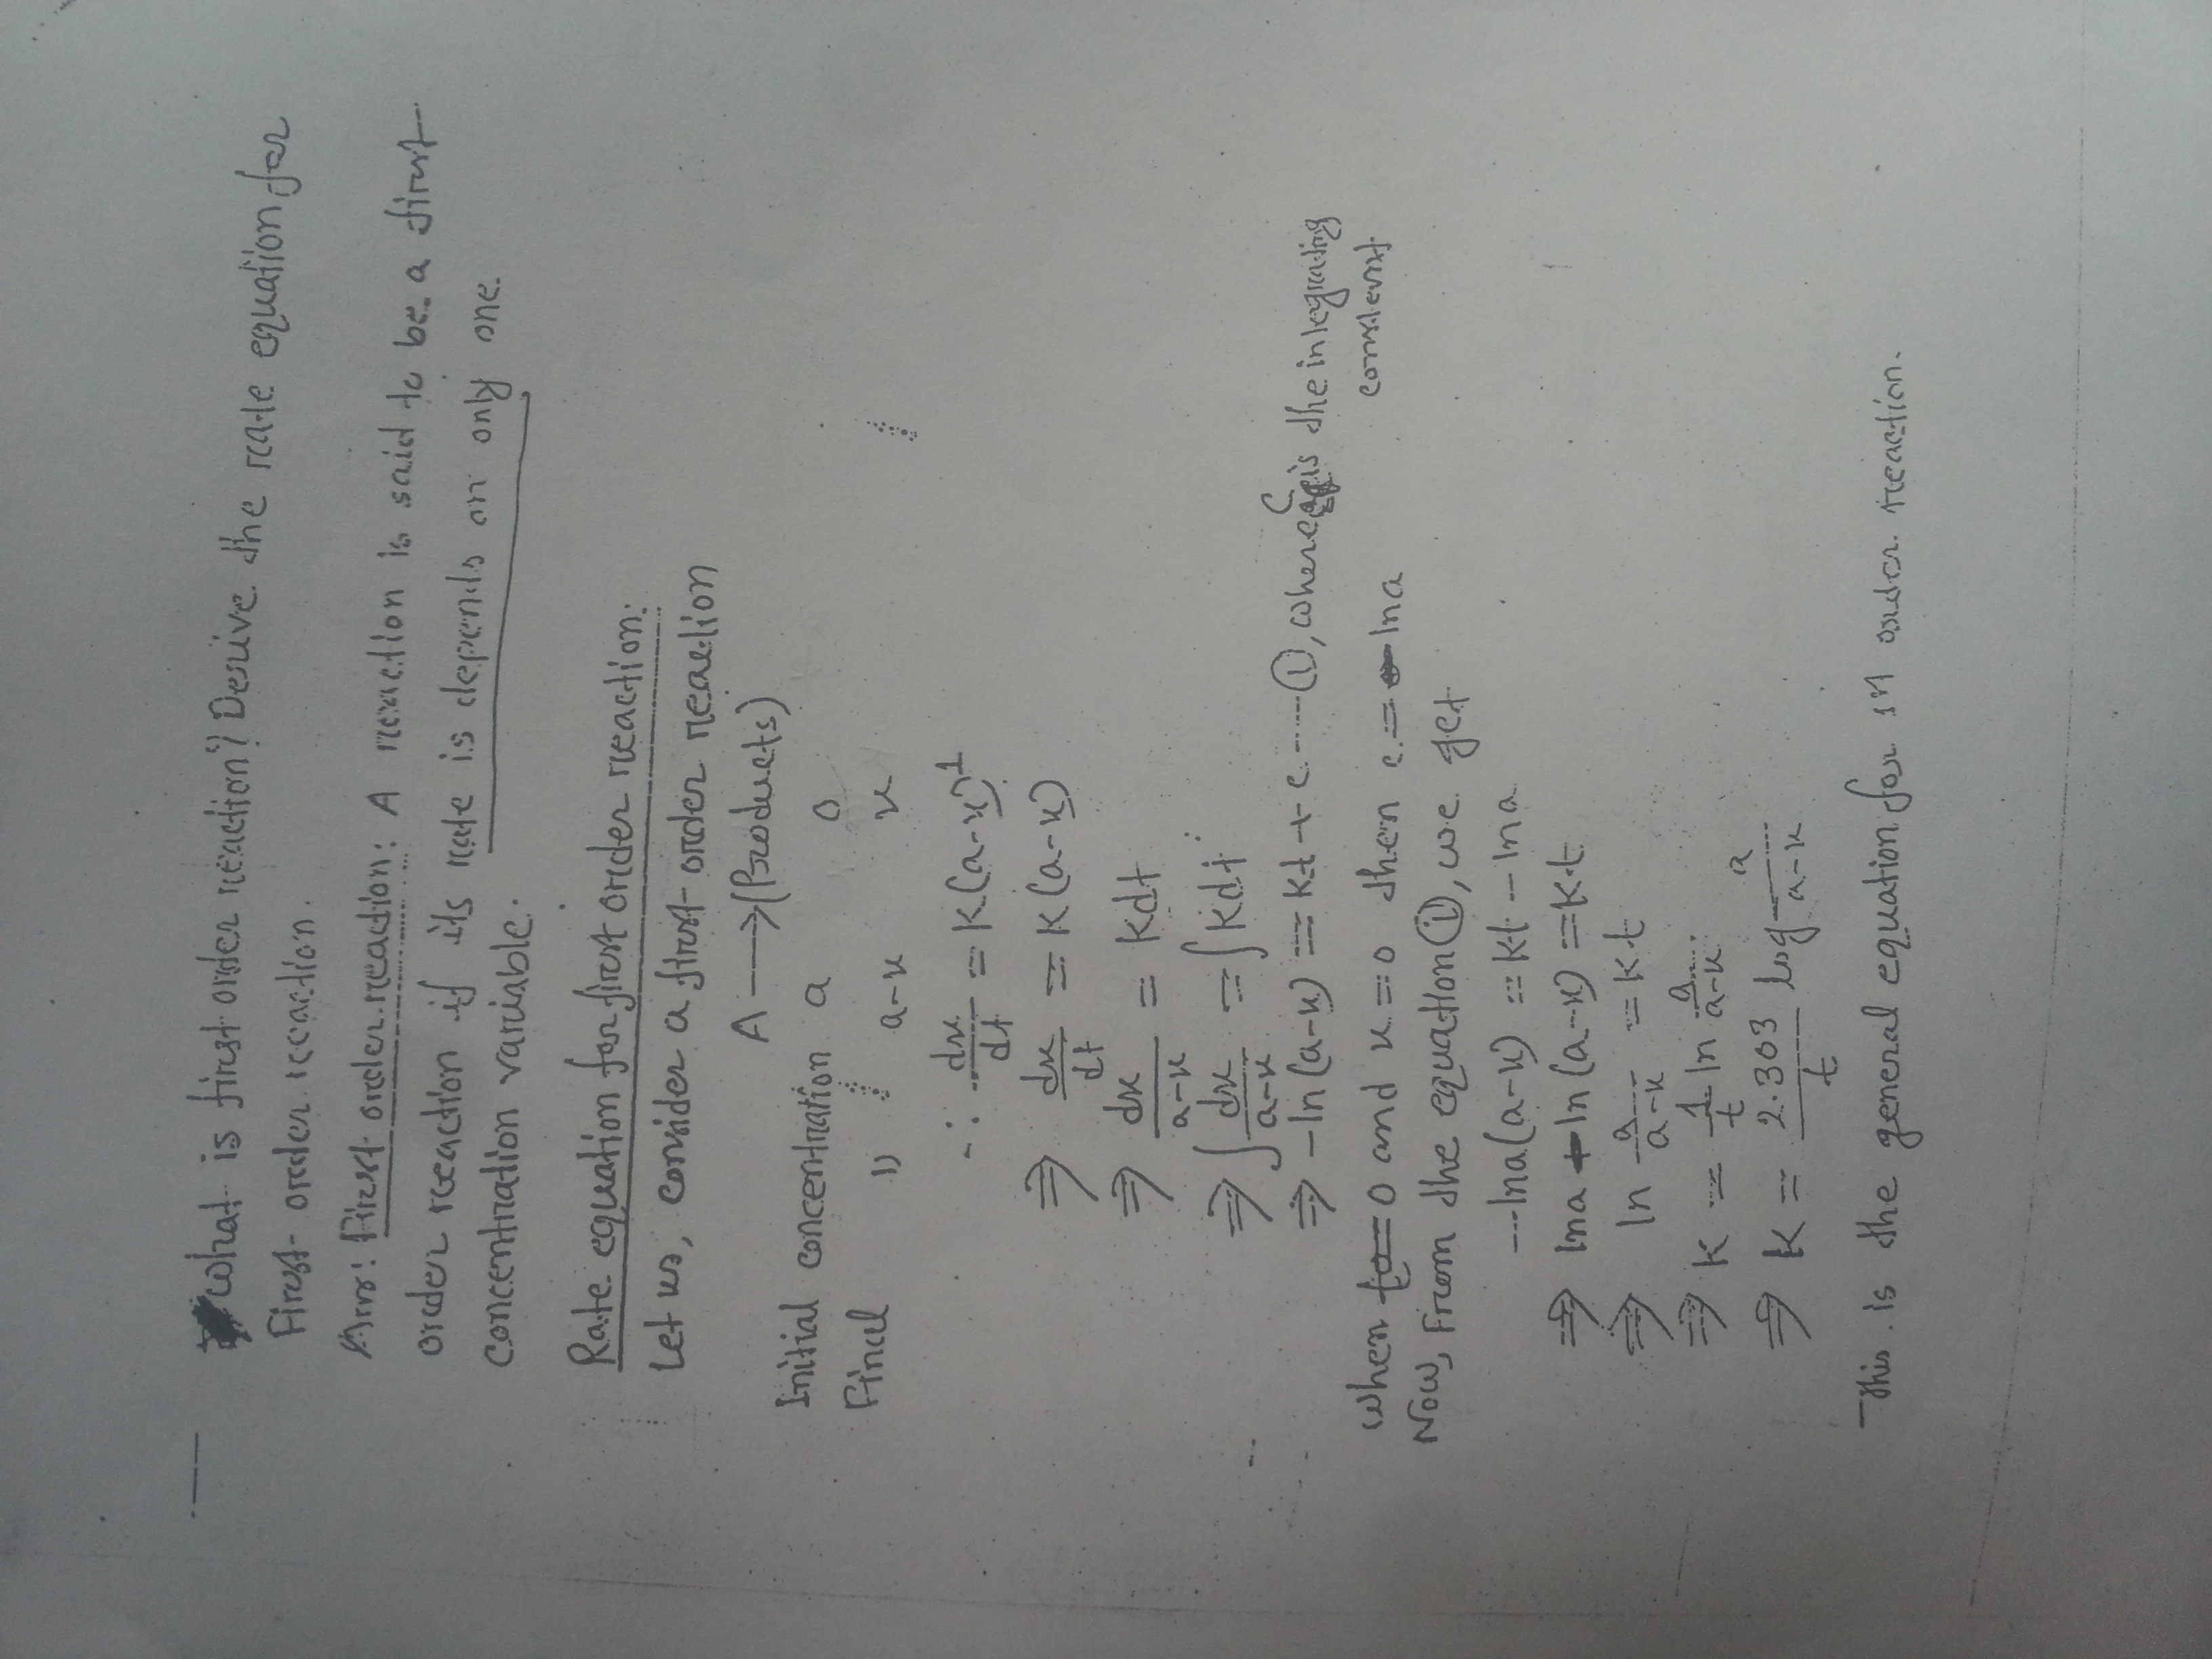 What is first order reaction? Derive the rate equation for
First order reaction.
Ans: First order reaction: A reaction is said to be a first
order reaction if its rate is depends on only one
concentration variable.
Rate equation for first order reaction:
Let us, consider a first order reaction
A ⟶ (Products)
Initial concentration a 0
Final " a-x x
∴ dx/dt = K(a-x)^1
⇒ dx/dt = K(a-x)
⇒ dx/a-x = Kdt
⇒ ∫dx/a-x = ∫Kdt
⇒ -ln(a-x) = Kt + c ---- ①, where C is the integrating
constant
When t = 0 and x = 0 then c = - lna
Now, From the equation ①, we get
-lna(a-x) = Kt - lna
⇒ lna - ln(a-x) = Kt
⇒ ln a/a-x = Kt
⇒ K = 1/t ln a/a-x
⇒ K = 2.303/t log a/a-x
This is the general equation for 1st order reaction.